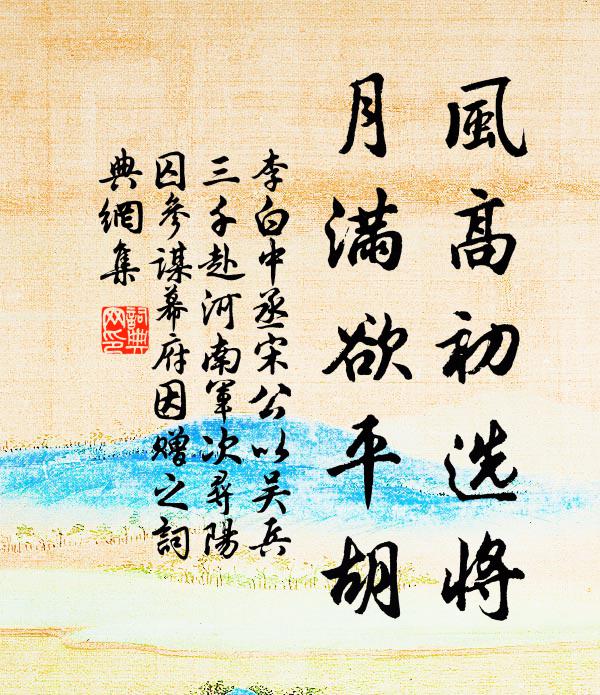 風高初选將
月滿欲平胡
李白中丞宋公以吴兵
三千赴河南軍次尋陽
囚參謀幕府因赠之詞
典網集
詞典
网印